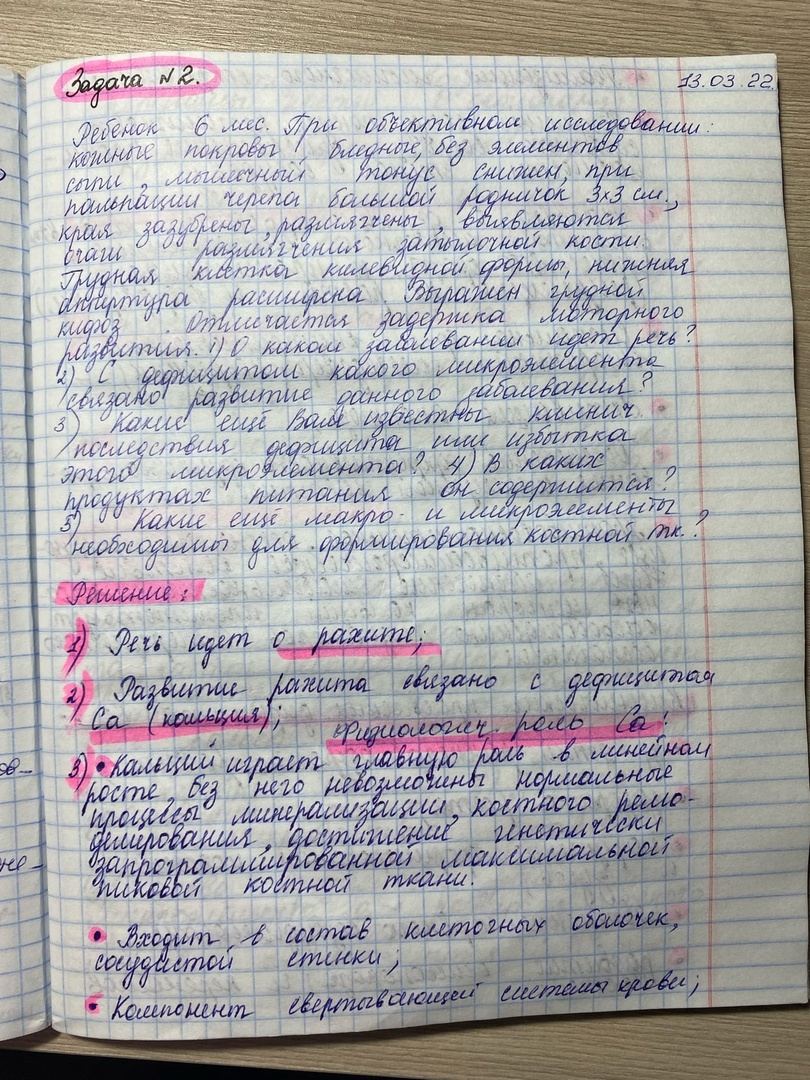 Задача №2.
13.03.22
Ребенок 6 мес. При объективном исследовании:
кожные покровы бледные, без элементов
сыпи, мышечный тонус снижен, при
пальпации черепа большой родничок 3х3 см.,
края зазубрены, размягчены, выявляются
очаги размягчения затылочной кости.
Грудная клетка килевидной формы, нижняя
апертура расширена. Выражен грудной
кифоз. Отмечается задержка моторного
развития. 1) О каком заболевании идет речь?
2) С дефицитом какого микроэлемента
связано развитие данного заболевания?
3) Какие ещё Вам известны клинич.
последствия дефицита или избытка
этого микроэлемента? 4) В каких
продуктах питания он содержится?
5) Какие ещё макро- и микроэлементы
необходимы для формирования костной тк.?
Решение:
1) Речь идет о рахите;
2) Развитие рахита связано с дефицитом
Ca (кальция);
Физиологич. роль Ca:
3) • Кальций играет главную роль в линейном
росте, без него невозможны нормальные
процессы минерализации, костного ремо-
делирования, достижение генетически
запрограммированной максимальной
пиковой костной ткани.
• Входит в состав клеточных оболочек,
сосудистой стенки;
• Компонент свертывающей системы крови;